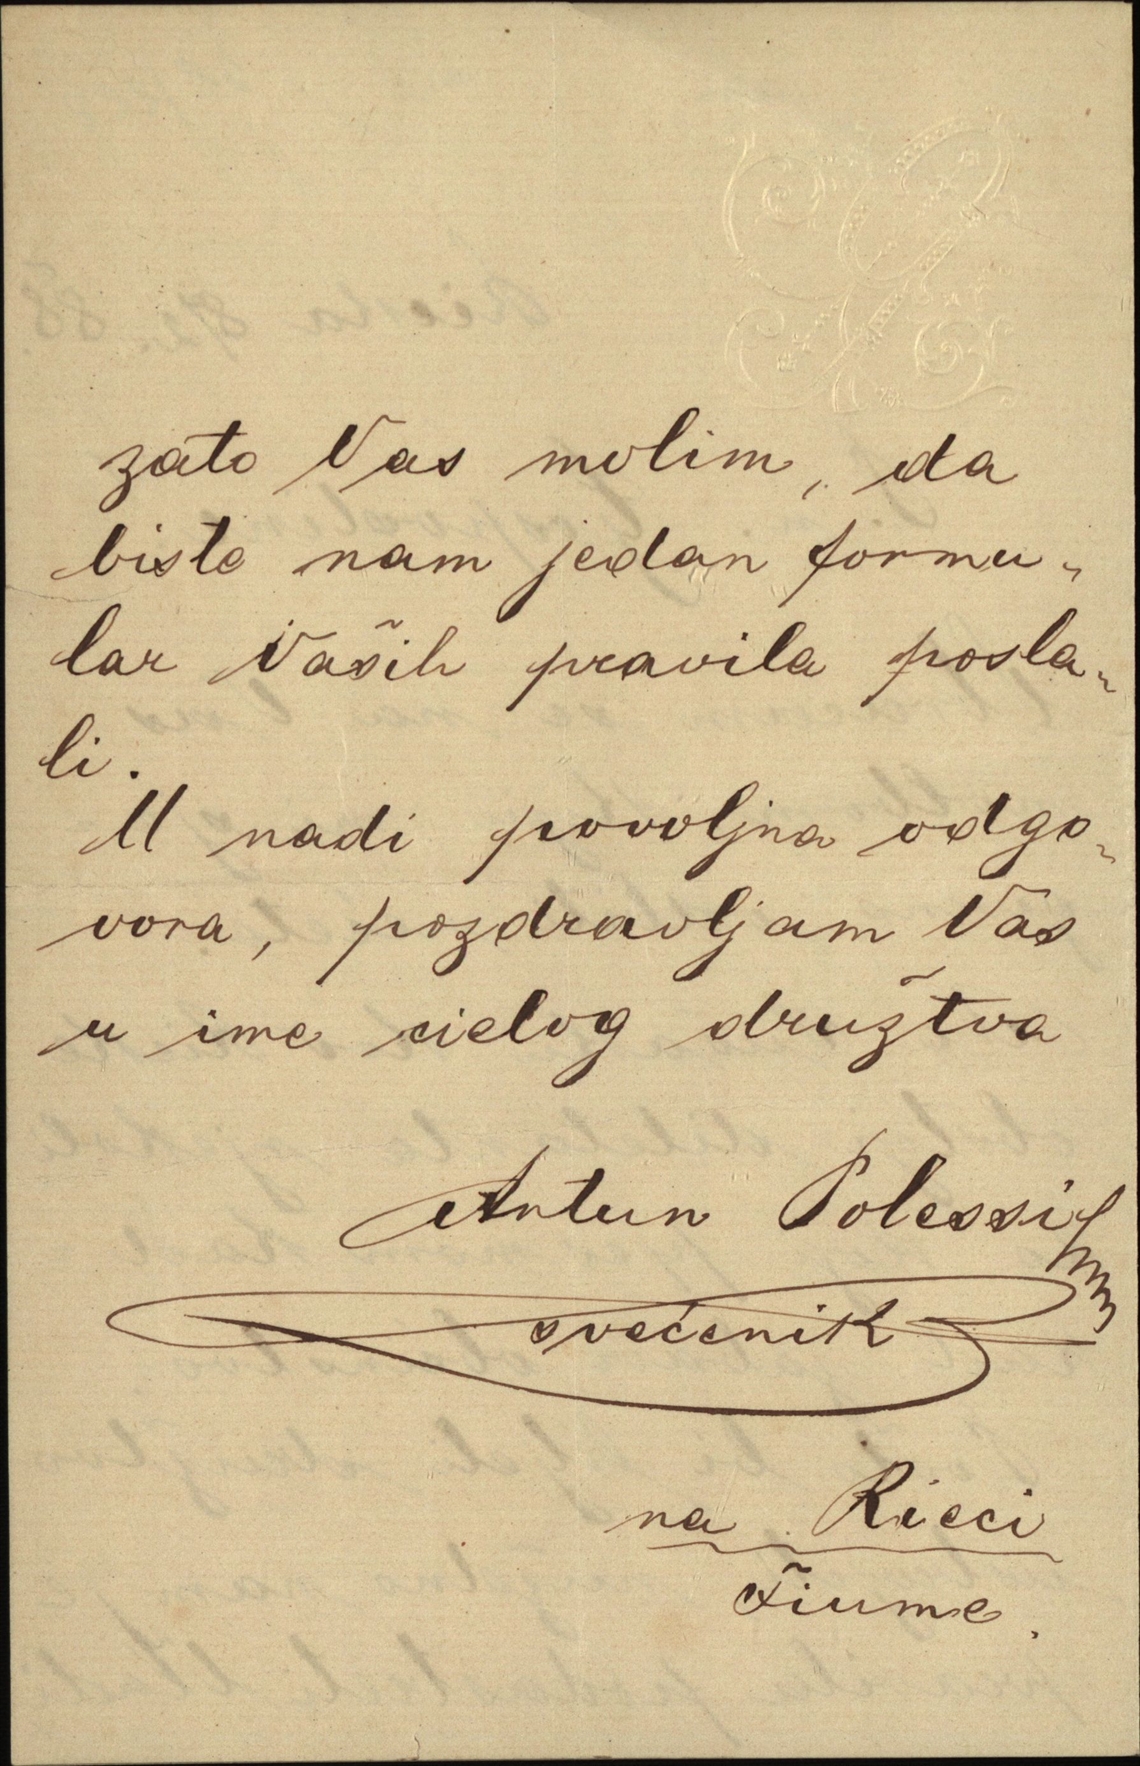 zato Vas molim, da
biste nam jedan formu-
lar Vaših pravila posla-
li.
U nadi povoljna odgo-
vora, pozdravljam Vas
u ime cielog družtva
Antun Polessi
svećenik
na Rieci
Fiume.